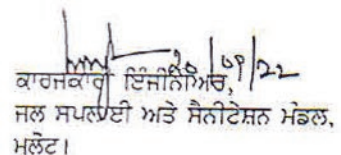 20/09/22
ਕਾਰਜਕਾਰੀ ਇੰਜੀਨੀਅਰ,
ਜਲ ਸਪਲਾਈ ਅਤੇ ਸੈਨੀਟੇਸ਼ਨ ਮੰਡਲ,
ਮਲੋਟ।